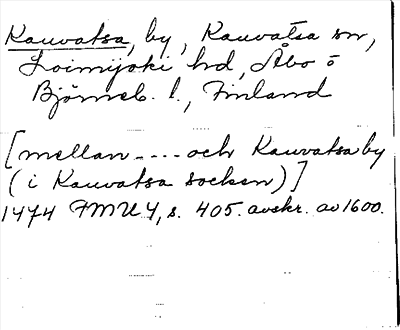 Kauvatsa, by, Kauvatsa sn,
Loimijoki hd, Åbo o
Björneb. l., Finland
[mellan .... och Kauvatsa by
(i Kauvatsa socken)]
1474 FMU 4, s. 405. avskr. av 1600.